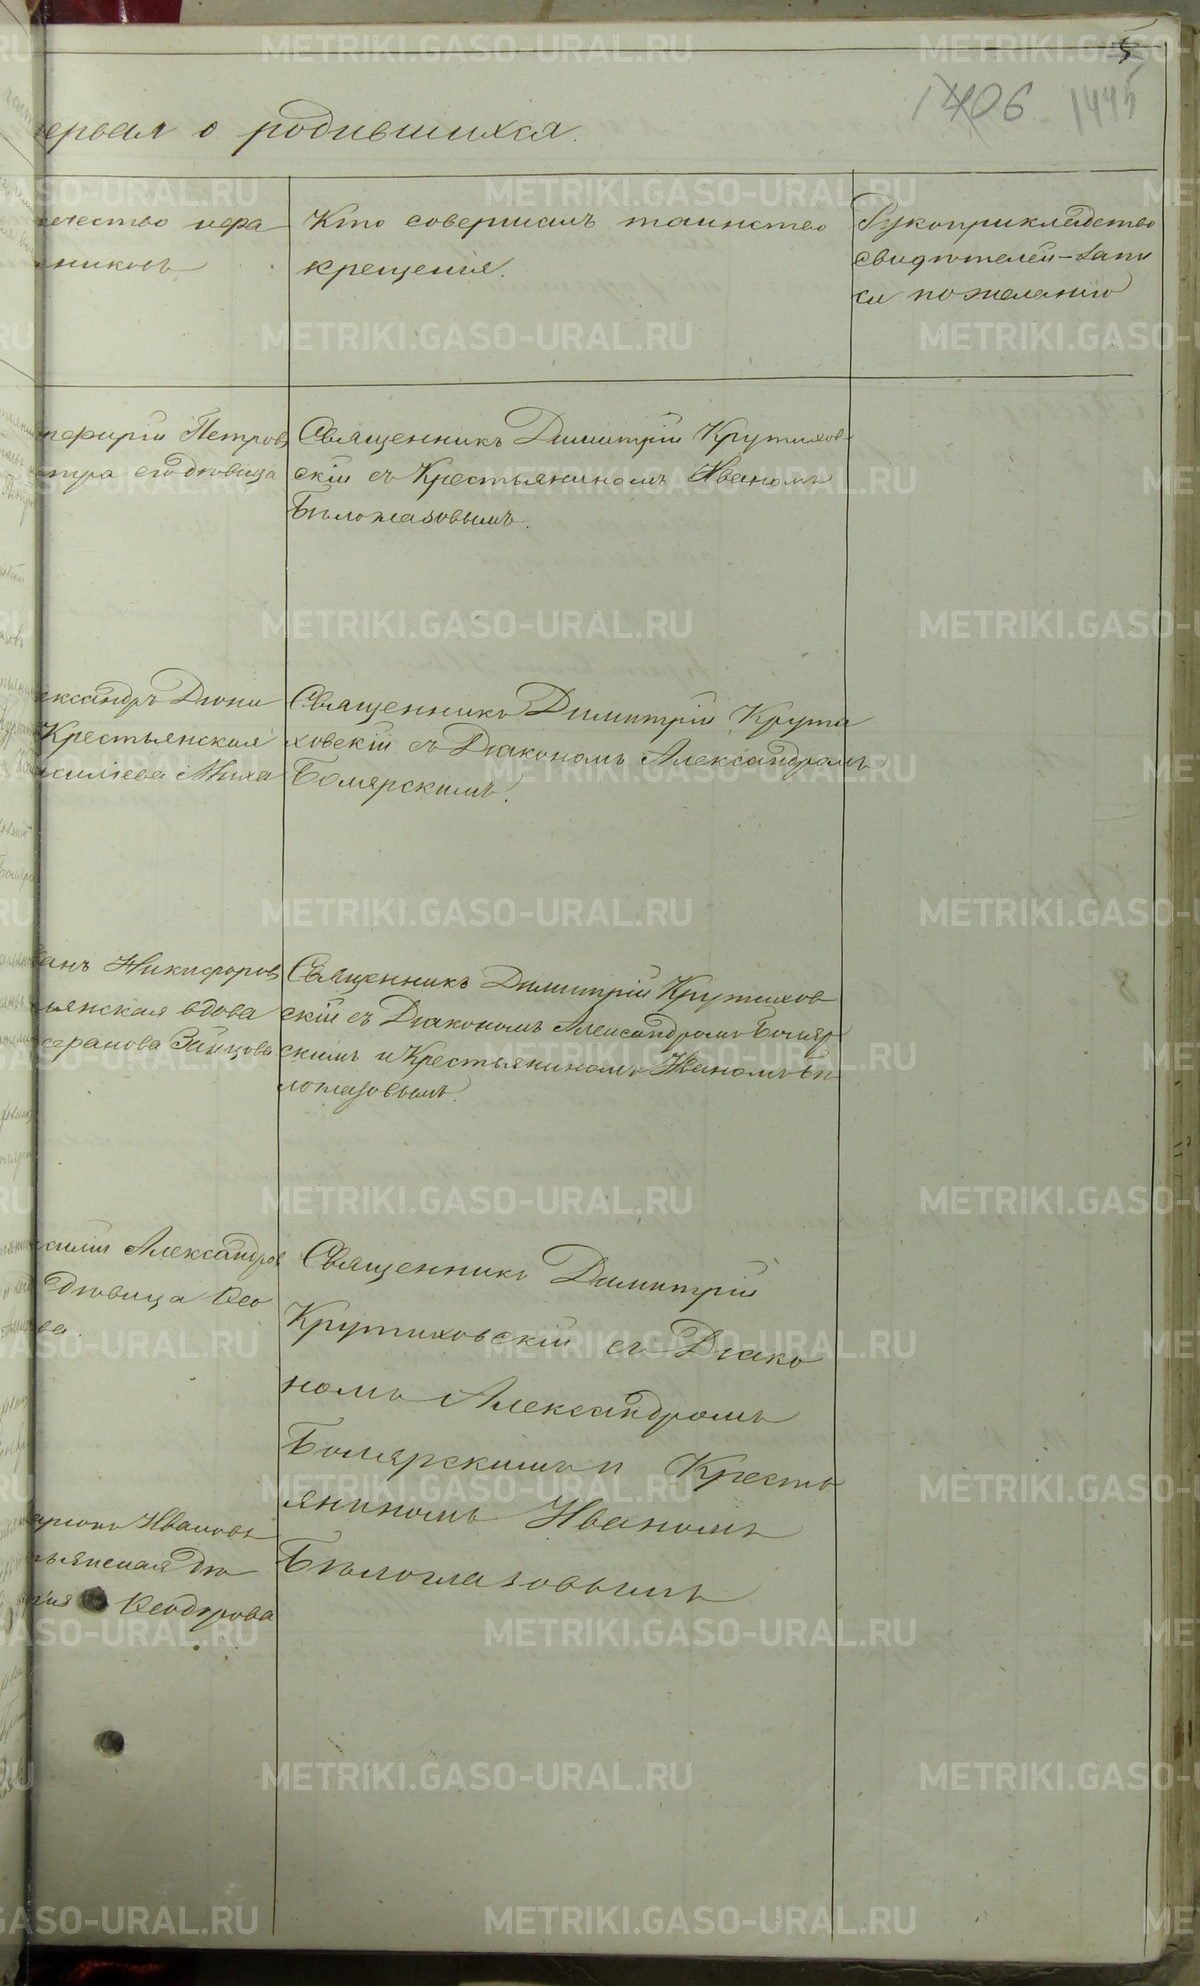 5
1406 1445
ервая о родившихся.
ечество иера
никовъ
Кто совершалъ таинство
крещения.
Рукоприкладство
свидѣтелей записи
по желанію
рфирій Петров
стра его дѣвица
Священникъ Димитрій Крутихов
скій съ Крестьяниномъ Иваномъ
Бѣлоглазовымъ.
ександръ Диони
Крестьянская
силіева Миха
Священникъ Димитрій Крути
ховскій съ Діакономъ Александромъ
Боярскимъ.
ванъ Никифоров
ьянская вдова
серапова Зайцова
Священникъ Димитрій Крутихов
скій съ Діакономъ Александромъ Бояр
скимъ и Крестьяниномъ Иваномъ Бѣ
логлазовымъ.
силій Александров
дѣвица Ѳео
ва.
Священникъ Димитрій
Крутиховскій съ Діако
номъ Александромъ
Боярскимъ и Кресть
яниномъ Иваномъ
Бѣлоглазовымъ
Ивановъ
ьянская дѣ
рія Ѳеодорова
METRIKI.GASO-URAL.RU